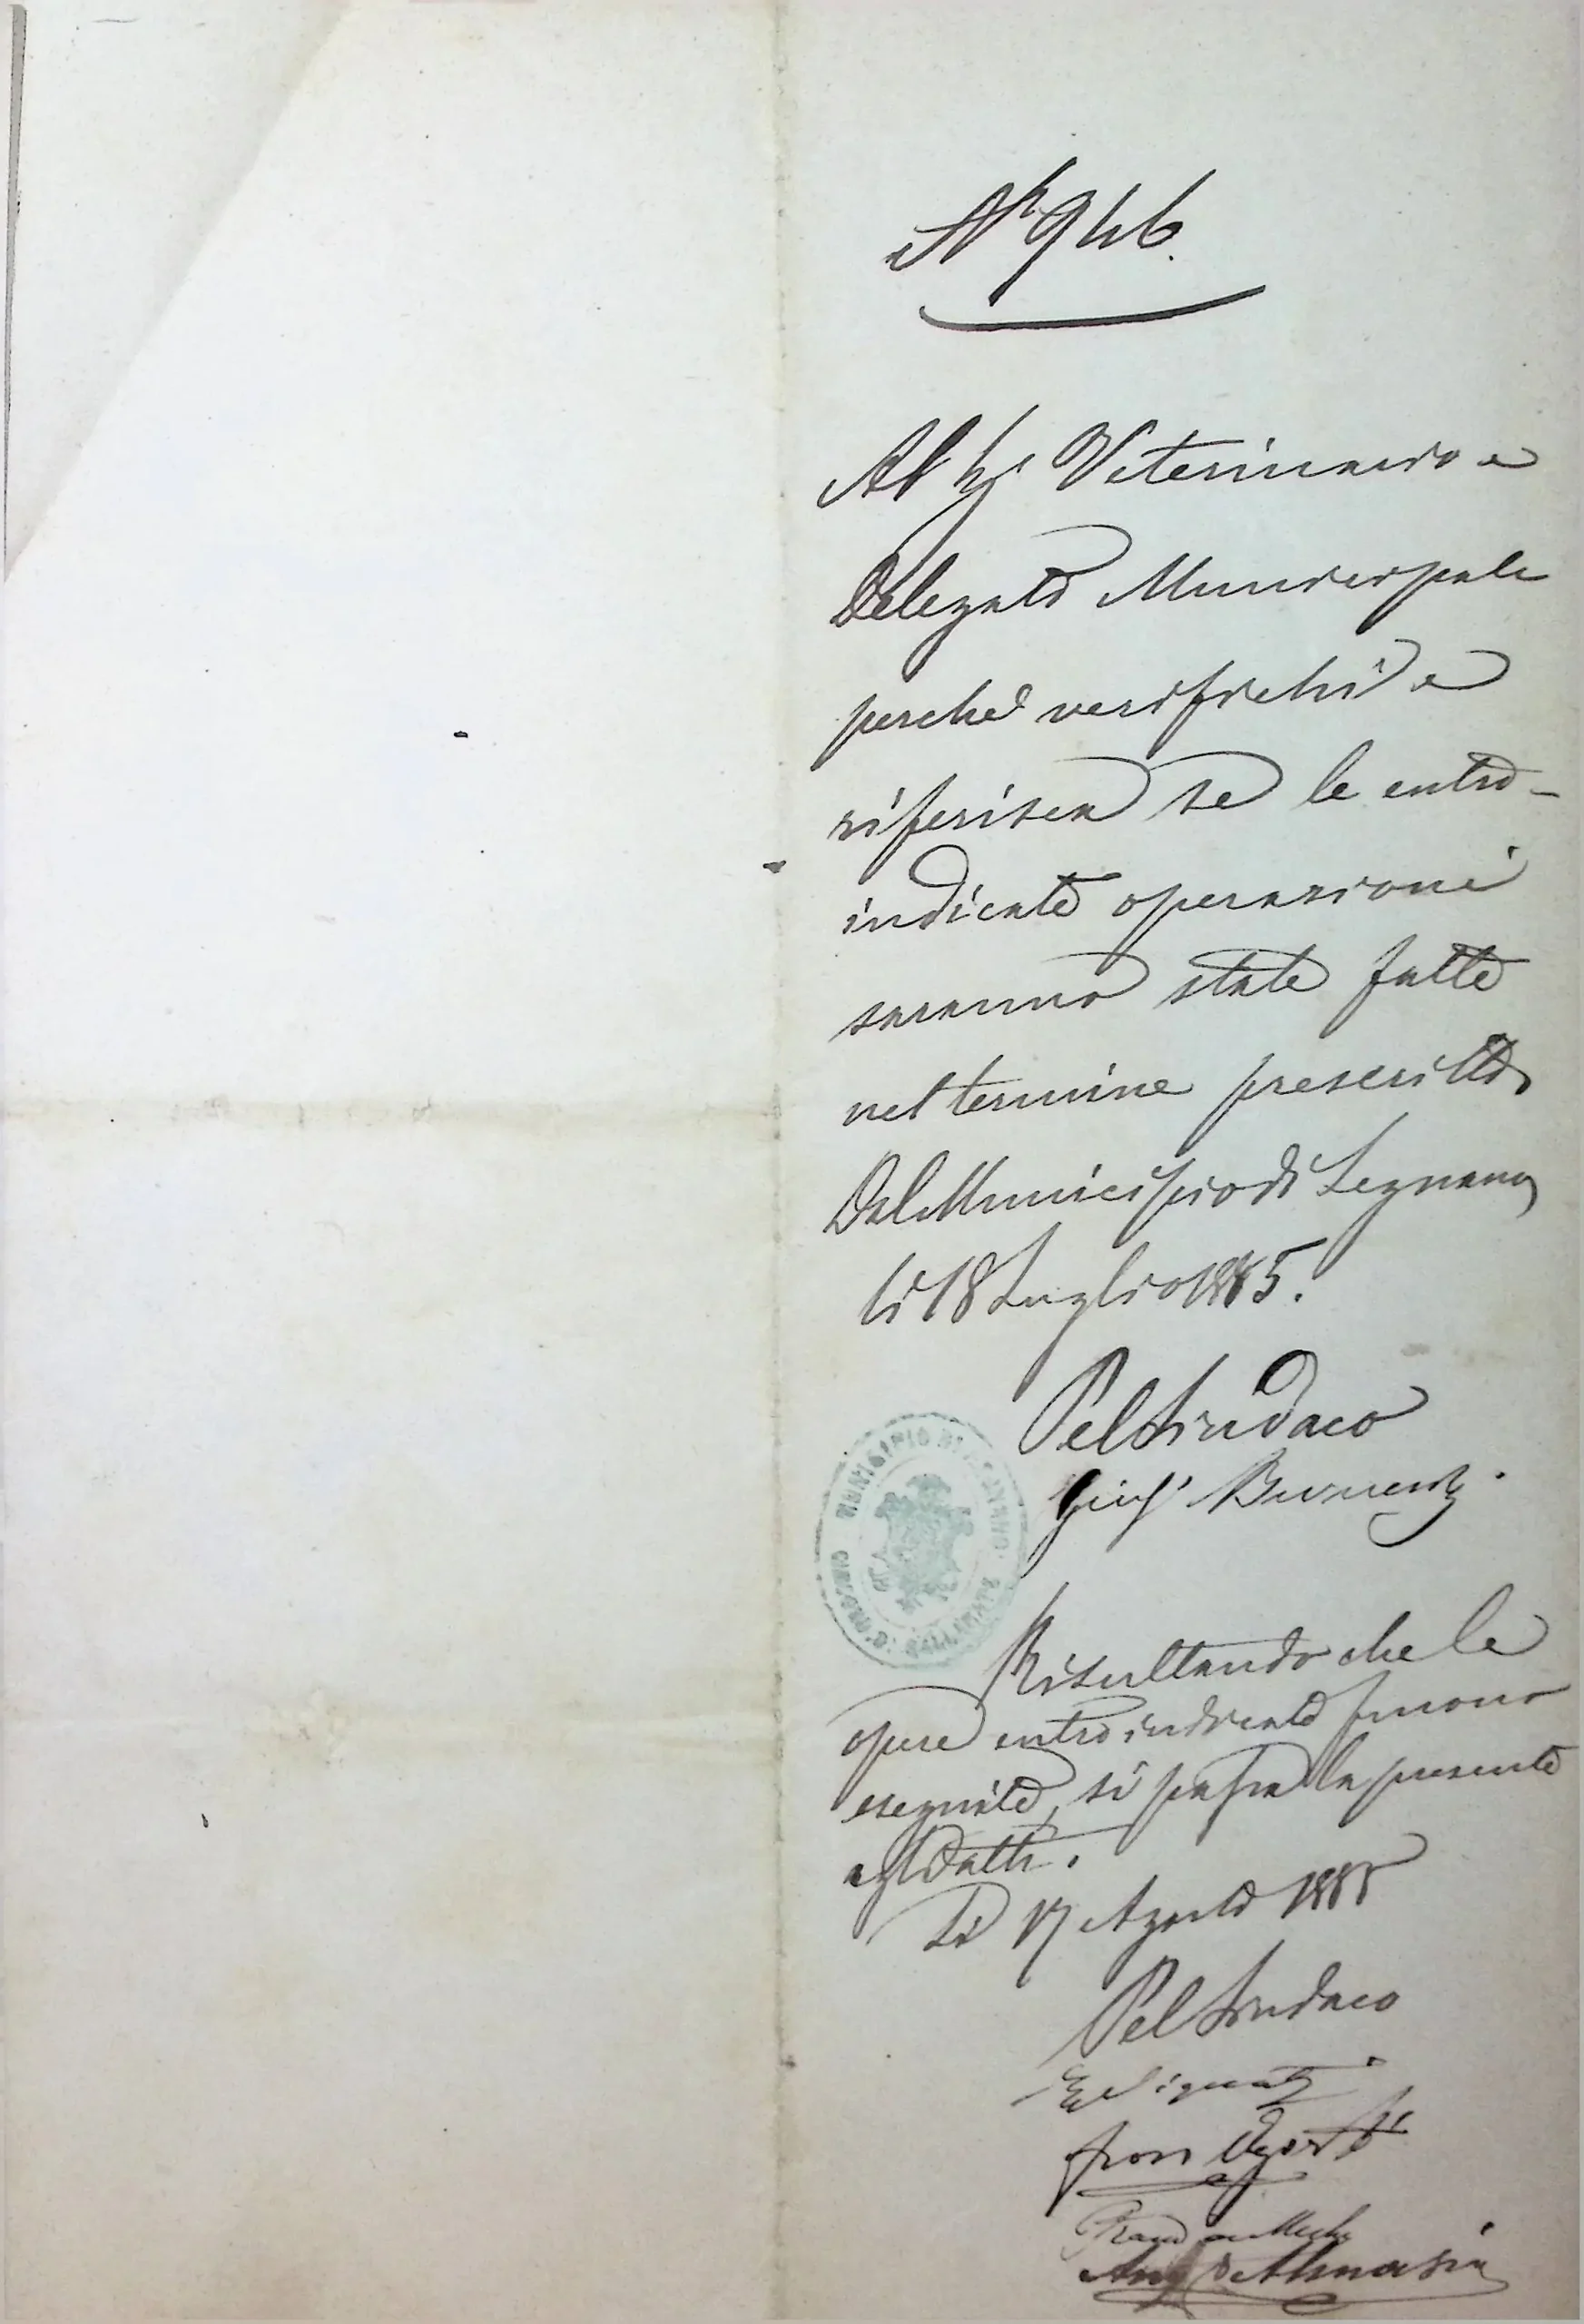 N° 946.
Al Sig. Veterinario e
Delegato Municipale
perchè verifichi e
riferisca se le entro-
indicate operazioni
saranno state fatte
nel termine prescritto
Dal Municipio di Legnano
li 18 Luglio 1885.
Pel Sindaco
Gius.
MUNICIPIO DI LEGNANO
Risultando che le
opere entro indicate furono
eseguite, si passa la presente
agli atti.
Li 17 Agosto 1885
Pel Sindaco